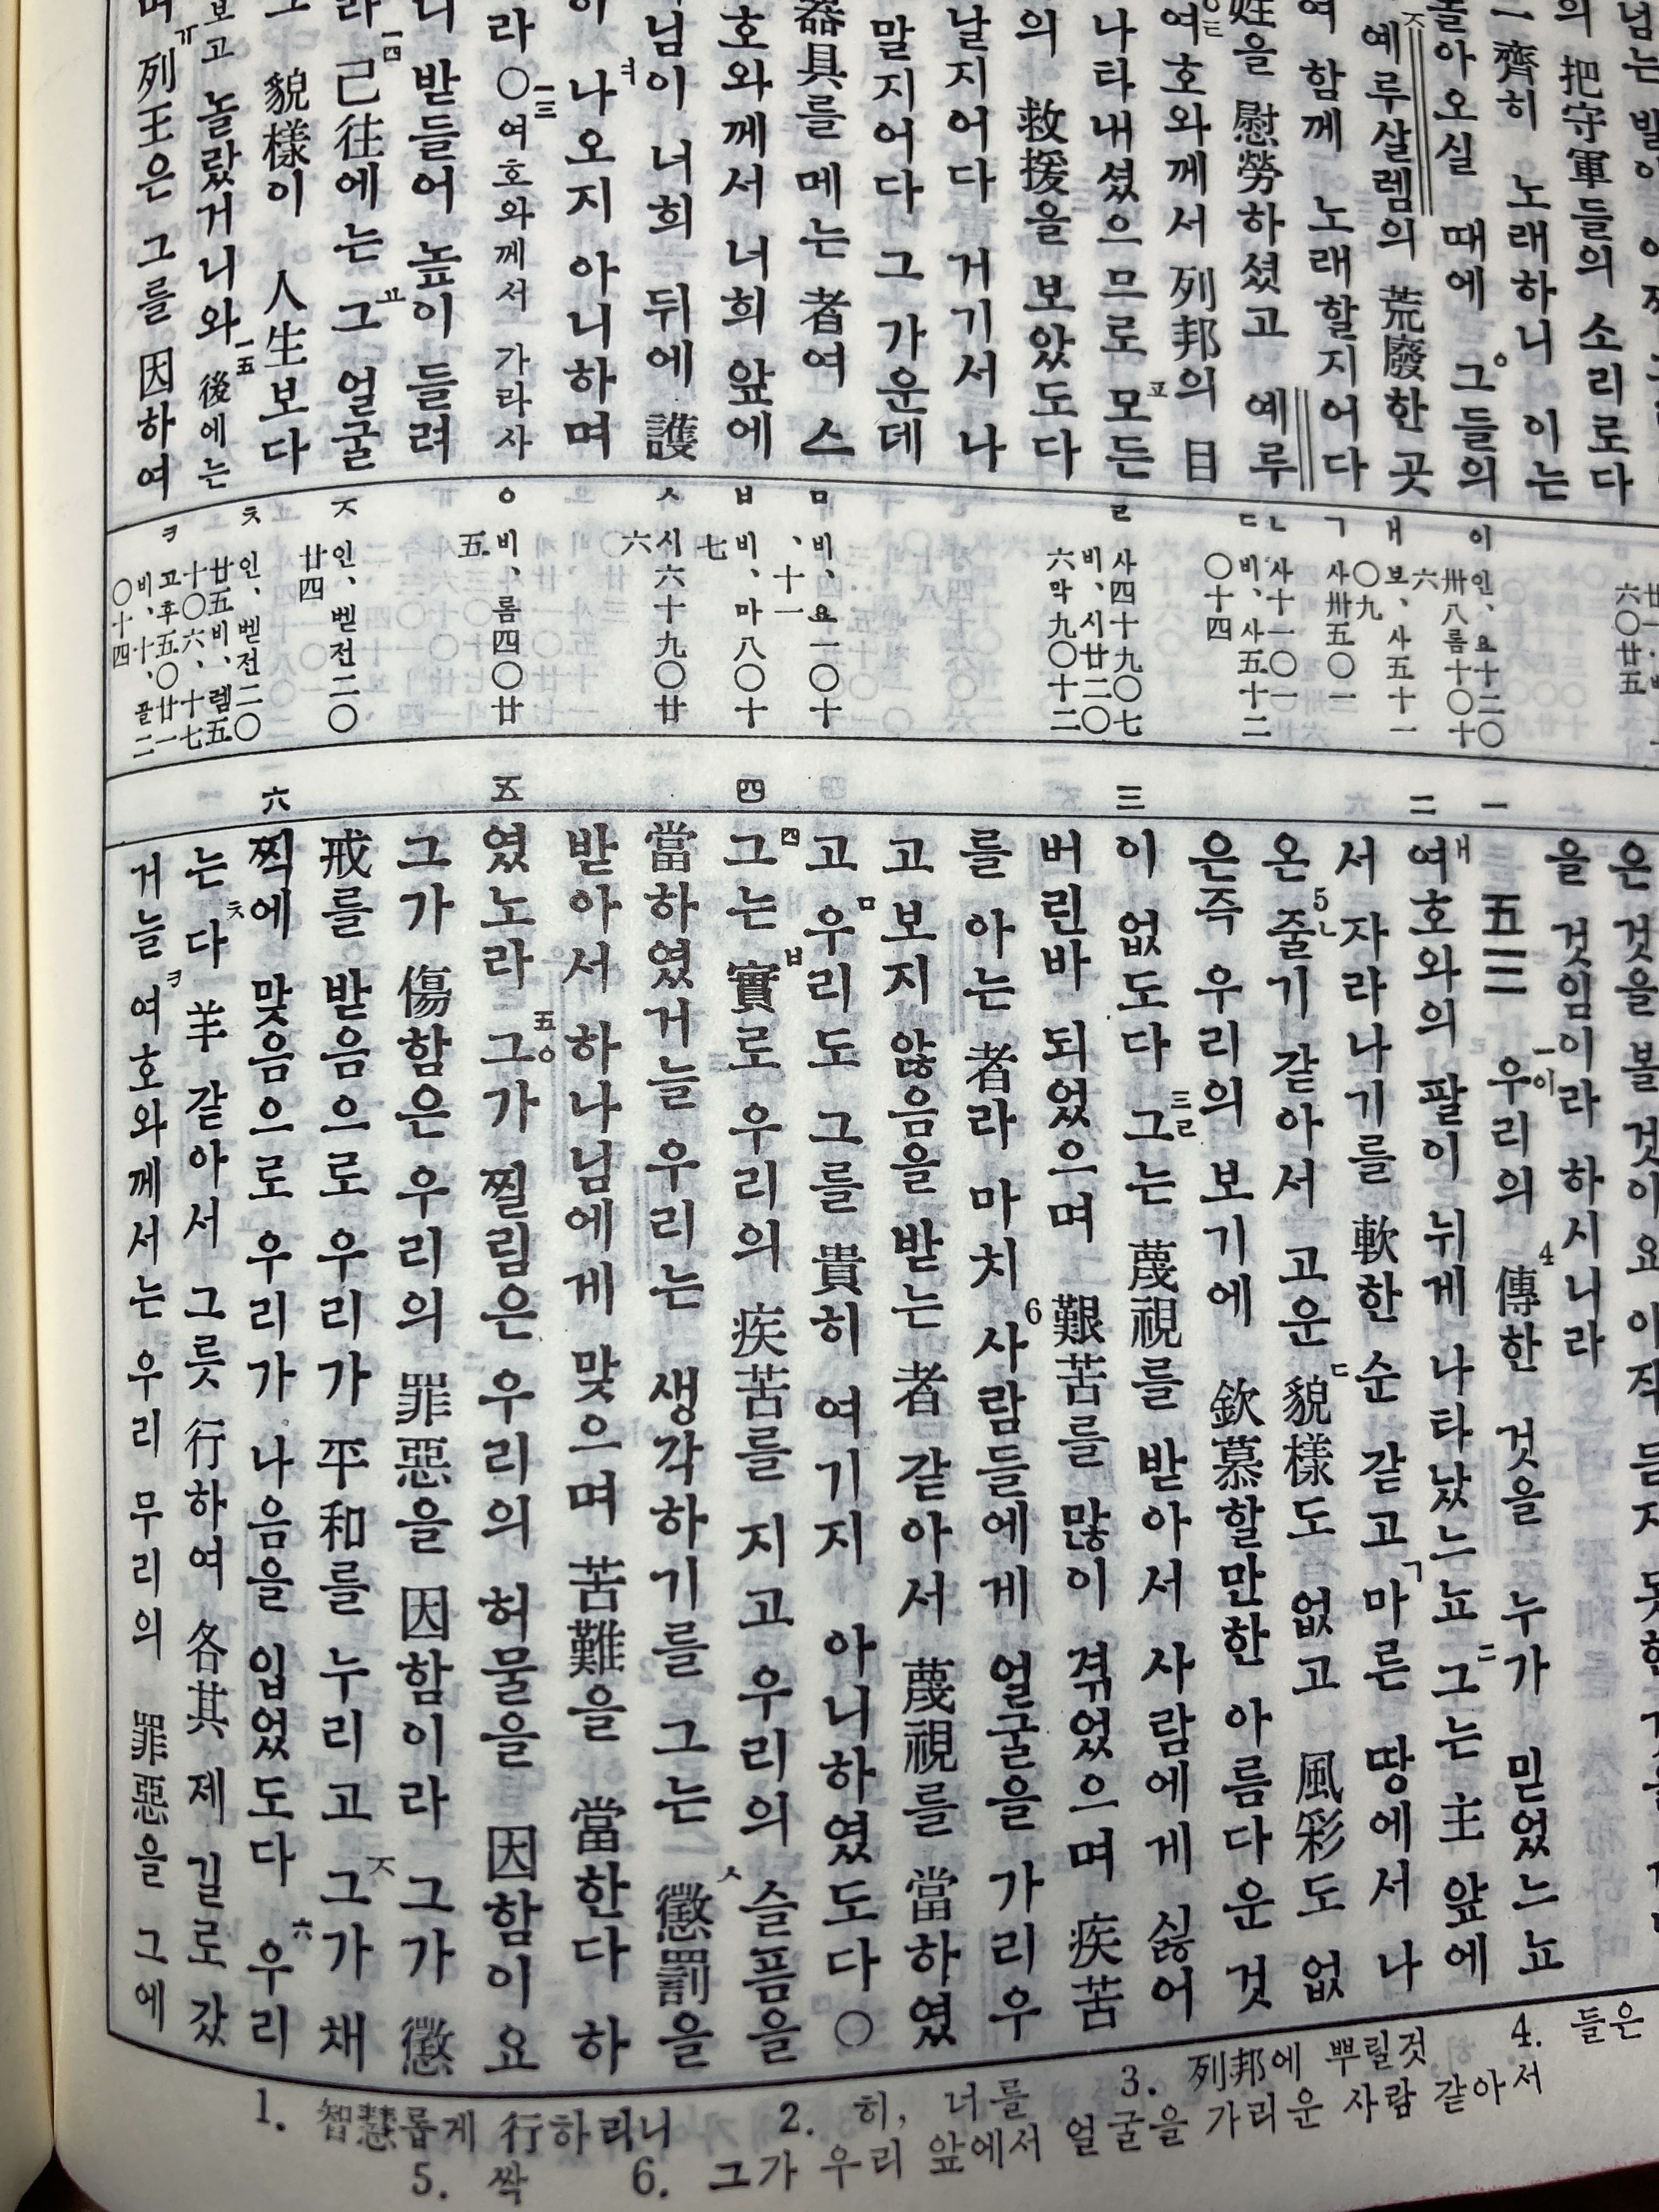 의 把守軍들의 소리로다
一齊히 노래하니 이는
돌아오실 때에 그들의
예루살렘의 荒廢한 곳
여 함께 노래할지어다
姓을 慰勞하셨고 예루
여호와께서 列邦의 目
나타내셨으므로 모든
의 救援을 보았도다
날지어다 거기서 나
말지어다 그 가운데
器具를 메는 者여 스
호와께서 너희 앞에
님이 너희 뒤에 護
나오지 아니하며
라 〇一三여호와께서 가라사
니 받들어 높이 들려
라 一四己往에는 그 얼굴
고 貌樣이 人生보다
보고 놀랐거니와 一五後에는
며 列王은 그를 因하여
六〇廿五
이 인、요十二〇
卅八롬十〇十
六
ㅐ 보、사五十一
〇九
ㄱ 사卅五〇一
ㄴ 사十一〇一
ㄷ 비、사五十二
〇十四
ㄹ 사四十九〇七
비、시廿二〇
六막九〇十二
ㅁ 비、요一〇十
、十一
ㅂ 비、마八〇十
七
ㅅ 시六十九〇廿
六
ㅇ 비、롬四〇廿
五
ㅈ 인、벧전二〇
廿四
ㅊ 인、벧전二〇
廿五비、렘五
十〇六、十七
ㅋ 고후五〇廿一
비、十、골二
〇十四
一 二 三 四 五 六
을 것임이라 하시니라
五三 一이우리의 4傳한 것을 누가 믿었느뇨
ㅐ여호와의 팔이 뉘게 나타났느뇨 二그는 主 앞에
서 자라나기를 軟한 순 같고 ㄱ마른 땅에서 나
온 5ㄴ줄기 같아서 고운 ㄷ貌樣도 없고 風彩도 없
은즉 우리의 보기에 欽慕할만한 아름다운 것
이 없도다 三ㄹ그는 蔑視를 받아서 사람에게 싫어
버린바 되었으며 艱苦를 많이 겪었으며 疾苦
를 아는 者라 마치 6사람들에게 얼굴을 가리우
고 보지 않음을 받는 者 같아서 蔑視를 當하였
고 ㅁ우리도 그를 貴히 여기지 아니하였도다 〇
四그는 ㅂ實로 우리의 疾苦를 지고 우리의 슬픔을
當하였거늘 우리는 생각하기를 그는 ㅅ懲罰을
받아서 하나님에게 맞으며 苦難을 當한다 하
였노라 五ㅇ그가 찔림은 우리의 허물을 因함이요
그가 傷함은 우리의 罪惡을 因함이라 그가 懲
戒를 받음으로 우리가 平和를 누리고 ㅈ그가 채
찍에 맞음으로 우리가 나음을 입었도다 六우리
는 다 ㅊ羊 같아서 그릇 行하여 各其 제 길로 갔
거늘 ㅋ여호와께서는 우리 무리의 罪惡을 그에
1. 智慧롭게 行하리니 2. 히, 너를 3. 列邦에 뿌릴것 4. 들은
5. 싹 6. 그가 우리 앞에서 얼굴을 가리운 사람 같아서